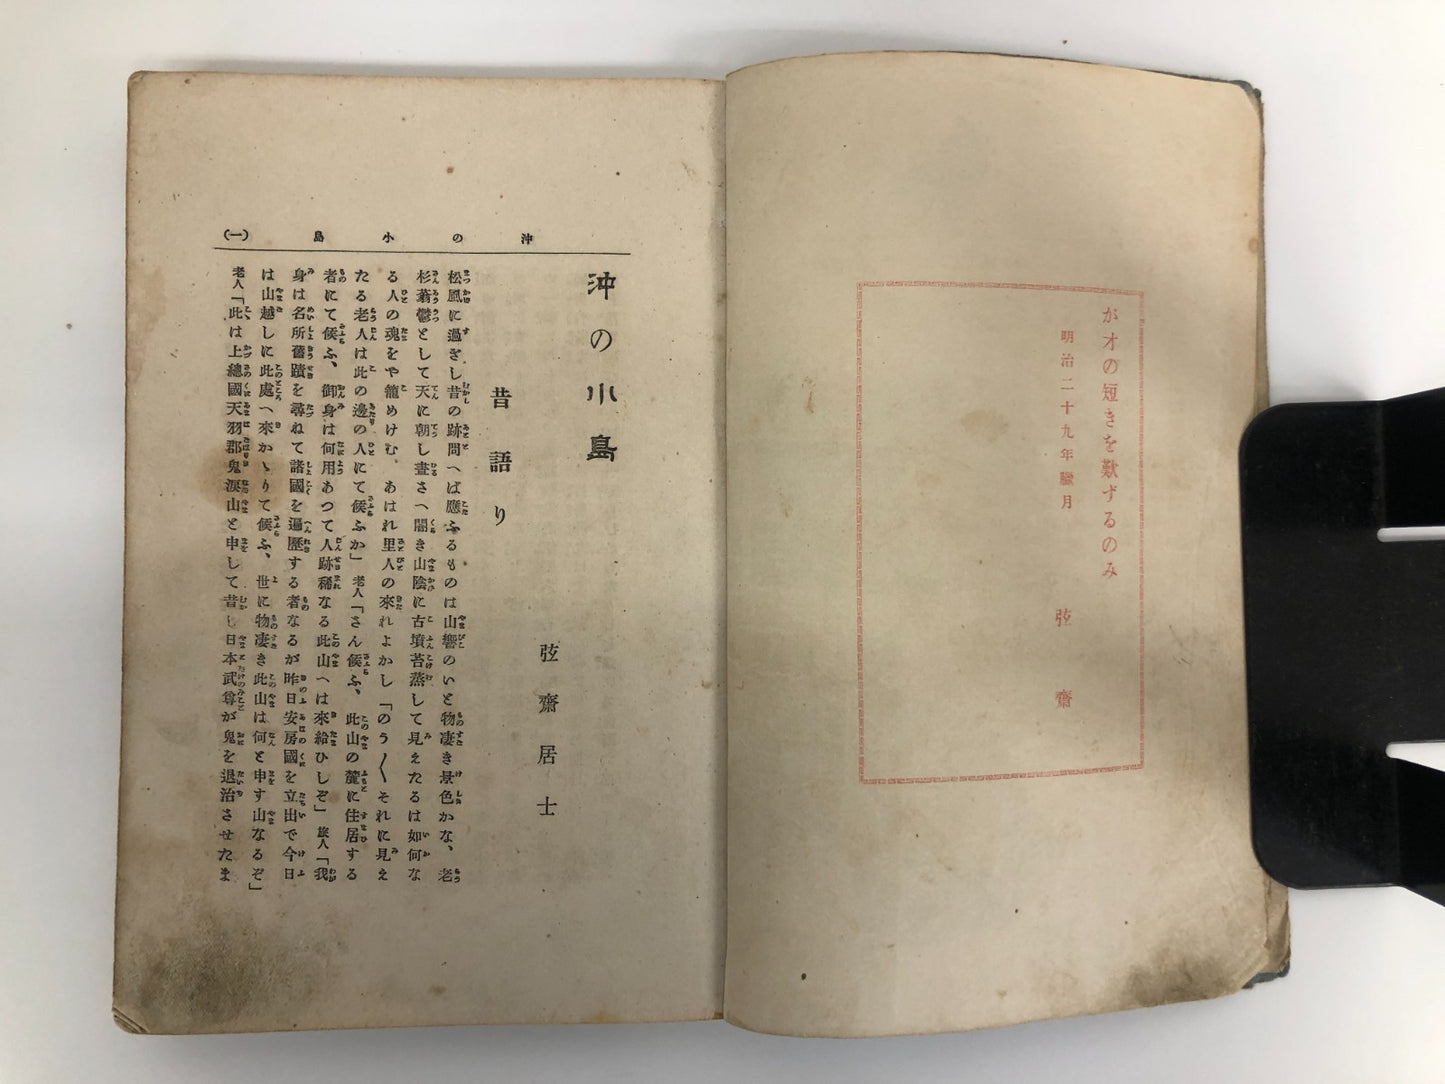 が才の短きを歎ずるのみ
明治二十九年臘月
弦齋
沖の小島 (一)
沖の小島
弦齋居士
昔語り
松風に過ぎし昔の跡問へば應ふるものは山響のいと物凄き景色かな、老
杉蓊鬱として天に朝し晝さへ闇き山陰に古墳苔蒸して見えたるは如何な
る人の魂をや籠めけむ、あはれ里人の來れよかし「のう〳〵それに見え
たる老人は此の邊の人にて候ふか」老人「さん候ふ、此山の麓に住居する
者にて候ふ、御身は何用あつて人跡稀なる此山へは來給ひしぞ」旅人「我
身は名所舊蹟を尋ねて諸國を遍歴する者なるが昨日安房國を立出で今日
は山越しに此處へ來かゝりて候ふ、世に物凄き此山は何と申す山なるぞ」
老人「此は上總國天羽郡鬼淚山と申して昔し日本武尊が鬼を退治させたま